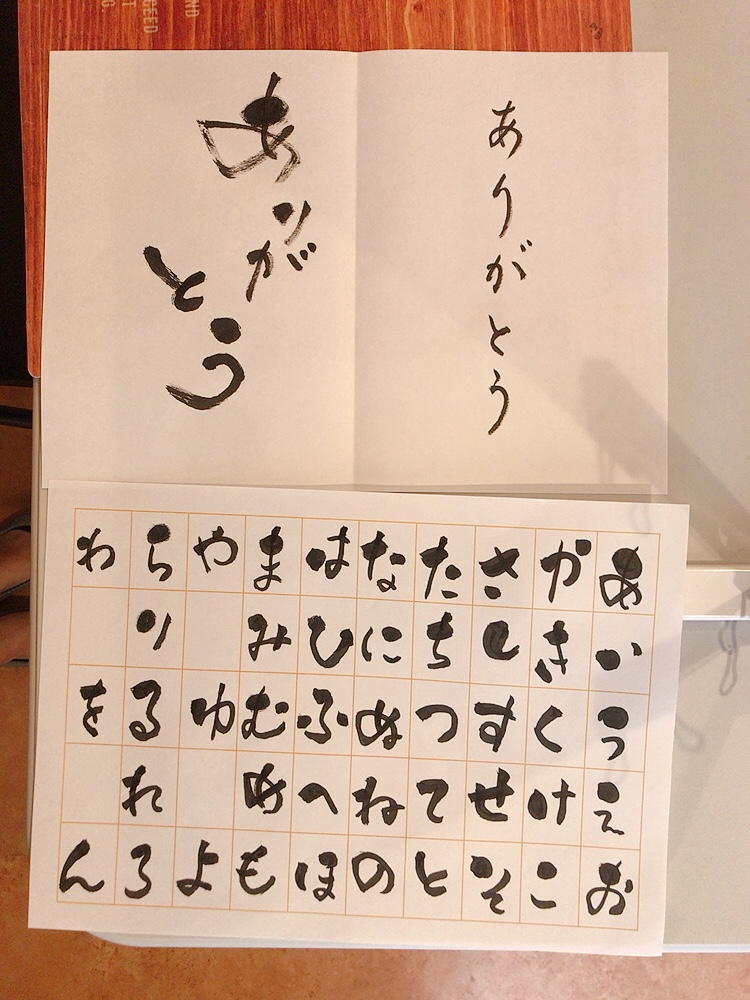 ND
CEED
T
G
ありがとう
ありが
とう
あいうえお
かきくけこ
さしすせそ
たちつてと
なにぬねの
はひふへほ
まみむめも
やゆよ
らりるれろ
わをん